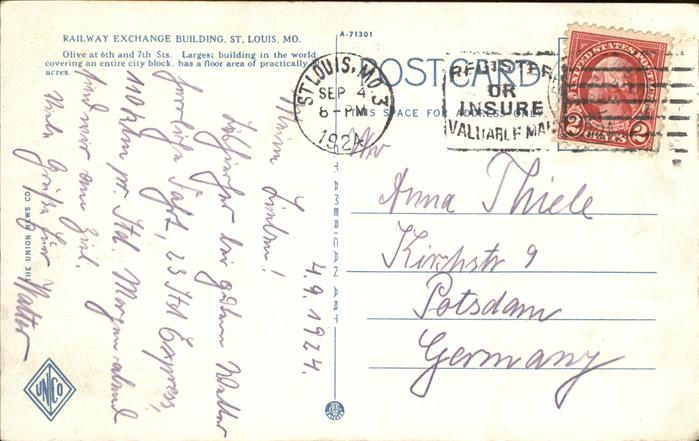 RAILWAY EXCHANGE BUILDING, ST. LOUIS, MO.
Olive at 6th and 7th Sts. Largest building in the world
covering an entire city block, has a floor area of practically
acres.
A-71301
POSTCARD
THIS SPACE FOR ADDRESS ONLY
ST. LOUIS, MO. 3
SEP 4
8-PM
1924
REGISTER
OR
INSURE
VALUABLE MAIL
UNITED STATES POSTAGE
2 CENTS 2
4.9.1924.
Meine Lieben!
bei gutem Wetter
herrliche Fahrt, 23 Std Express,
110 klm pr Std. Morgen abend
sind wir am Ziel.
Viele Grüße Euer Walter
An
Anna Thiele
Kirchstr 9
Potsdam
Germany
THE UNION NEWS CO.
AMERICAN ART
UNCo